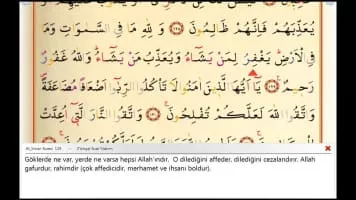 يُعَذِّبَهُمْ فَإِنَّهُمْ ظَالِمُونَ ﴿١٢٨﴾ وَلِلّٰهِ مَا فِي السَّمٰوَاتِ وَمَا
فِي الْاَرْضِ يَغْفِرُ لِمَنْ يَشَٓاءُ وَيُعَذِّبُ مَنْ يَشَٓاءُ وَاللّٰهُ غَفُورٌ
رَحِيمٌ ﴿١٢٩﴾ يَٓا اَيُّهَا الَّذِينَ اٰمَنُوا لَا تَأْكُلُوا الرِّبٰٓوا اَضْعَافًا مُضَاعَفَةً
وَاتَّقُوا اللّٰهَ لَعَلَّكُمْ تُفْلِحُونَ ﴿١٣٠﴾ وَاتَّقُوا النَّارَ الَّتِٓي اُعِدَّتْ
Göklerde ne var, yerde ne varsa hepsi Allah'ındır. O dilediğini affeder, dilediğini cezalandırır. Allah
gafurdur, rahimdir (çok affedicidir, merhamet ve ihsanı boldur).